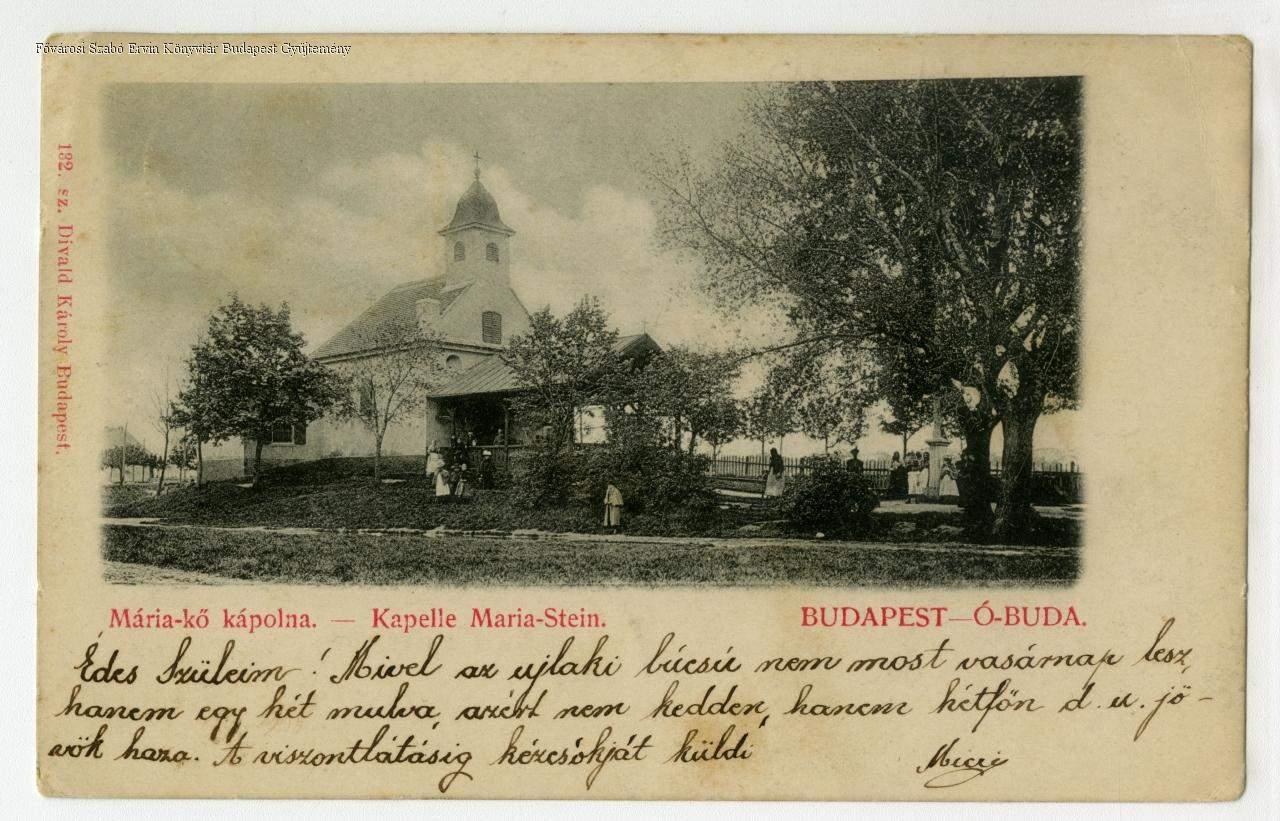 Fővárosi Szabó Ervin Könyvtár Budapest Gyűjtemény
132. sz. Divald Károly Budapest.
Mária-kő kápolna. — Kapelle Maria-Stein.
BUDAPEST—Ó-BUDA.
Édes Szüleim! Mivel az ujlaki búcsú nem most vasárnap lesz,
hanem egy hét mulva, azért nem kedden, hanem hétfőn d. u. jö-
vök haza. A viszontlátásig kézcsókját küldi
Micci